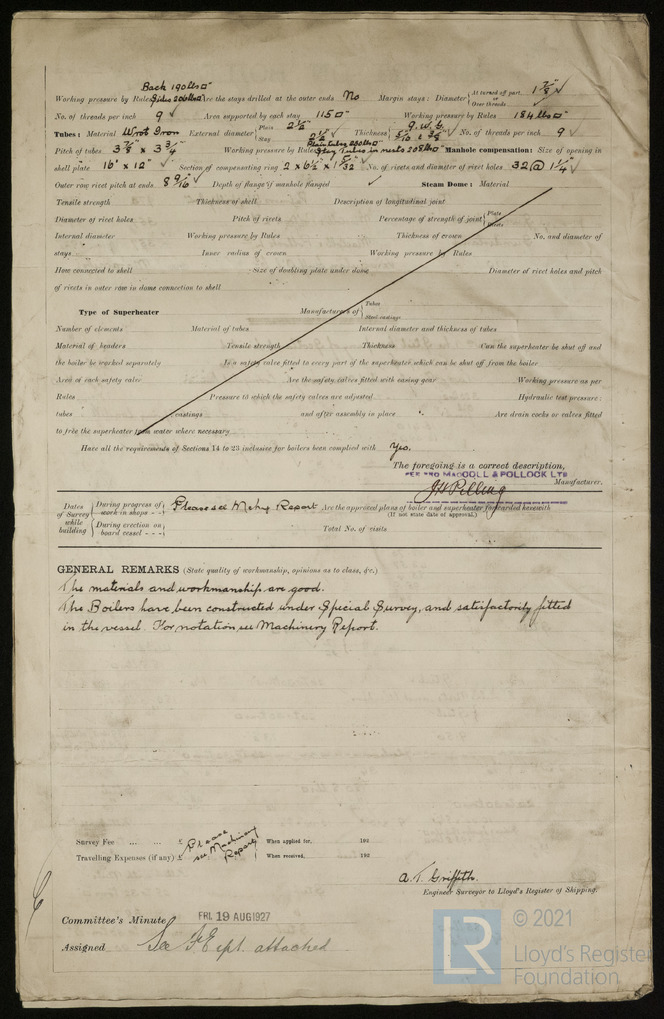 Back 190 lbs□"
Working pressure by Rules Sides 206 lbs□" Are the stays drilled at the outer ends No Margin stays: Diameter { At turned off part, 1 7/8" or Over threads
No. of threads per inch 9 ✓ Area supported by each stay 115□" Working pressure by Rules 184 lbs□"
Tubes: Material Wrot Iron External diameter { Plain 2 1/2" Stay 2 1/2" ✓ Thickness { 9. W. G. ✓ No. of threads per inch 9 ✓
Pitch of tubes 3 7/8" x 3 3/4" Working pressure by Rules Manhole compensation: Size of opening in
shell plate 16" x 12" ✓ Section of compensating ring No. of rivets and diameter of rivet holes 32 @ 1 1/4" ✓
Outer row rivet pitch at ends 8 9/16" ✓ Depth of flange if manhole flanged ✓ Steam Dome: Material
Tensile strength Thickness of shell Description of longitudinal joint
Diameter of rivet holes Pitch of rivets Percentage of strength of joint { Plate Rivets
Internal diameter Working pressure by Rules Thickness of crown No. and diameter of
stays Inner radius of crown Working pressure by Rules
How connected to shell Size of doubling plate under dome Diameter of rivet holes and pitch
of rivets in outer row in dome connection to shell
Type of Superheater Manufacturers of { Tubes Steel castings
Number of elements Material of tubes Internal diameter and thickness of tubes
Material of headers Tensile strength Thickness Can the superheater be shut off and
the boiler be worked separately Is a safety valve fitted to every part of the superheater which can be shut off from the boiler
Area of each safety valve Are the safety valves fitted with easing gear Working pressure as per
Rules Pressure to which the safety valves are adjusted Hydraulic test pressure:
tubes castings and after assembly in place Are drain cocks or valves fitted
to free the superheater from water where necessary
Have all the requirements of Sections 14 to 23 inclusive for boilers been complied with Yes.
The foregoing is a correct description,
PER PRO MacCOLL & POLLOCK LTD
J H Pilling Manufacturer.
Dates of Survey while building { During progress of work in shops - - Please see Mchy Report Are the approved plans of boiler and superheater forwarded herewith
(If not state date of approval.)
{ During erection on board vessel - - - Total No. of visits
GENERAL REMARKS (State quality of workmanship, opinions as to class, &c.)
The materials and workmanship are good.
The Boilers have been constructed under Special Survey, and satisfactorily fitted
in the vessel. For notation see Machinery Report.
Survey Fee ... ... £ Please see Machinery Report { When applied for, 192
Travelling Expenses (if any) £ { When received, 192
A. T. Griffith.
Engineer Surveyor to Lloyd's Register of Shipping.
Committee's Minute FRI. 19 AUG 1927
Assigned See F E rpt. attached
© 2021
LR Lloyd's Register
Foundation